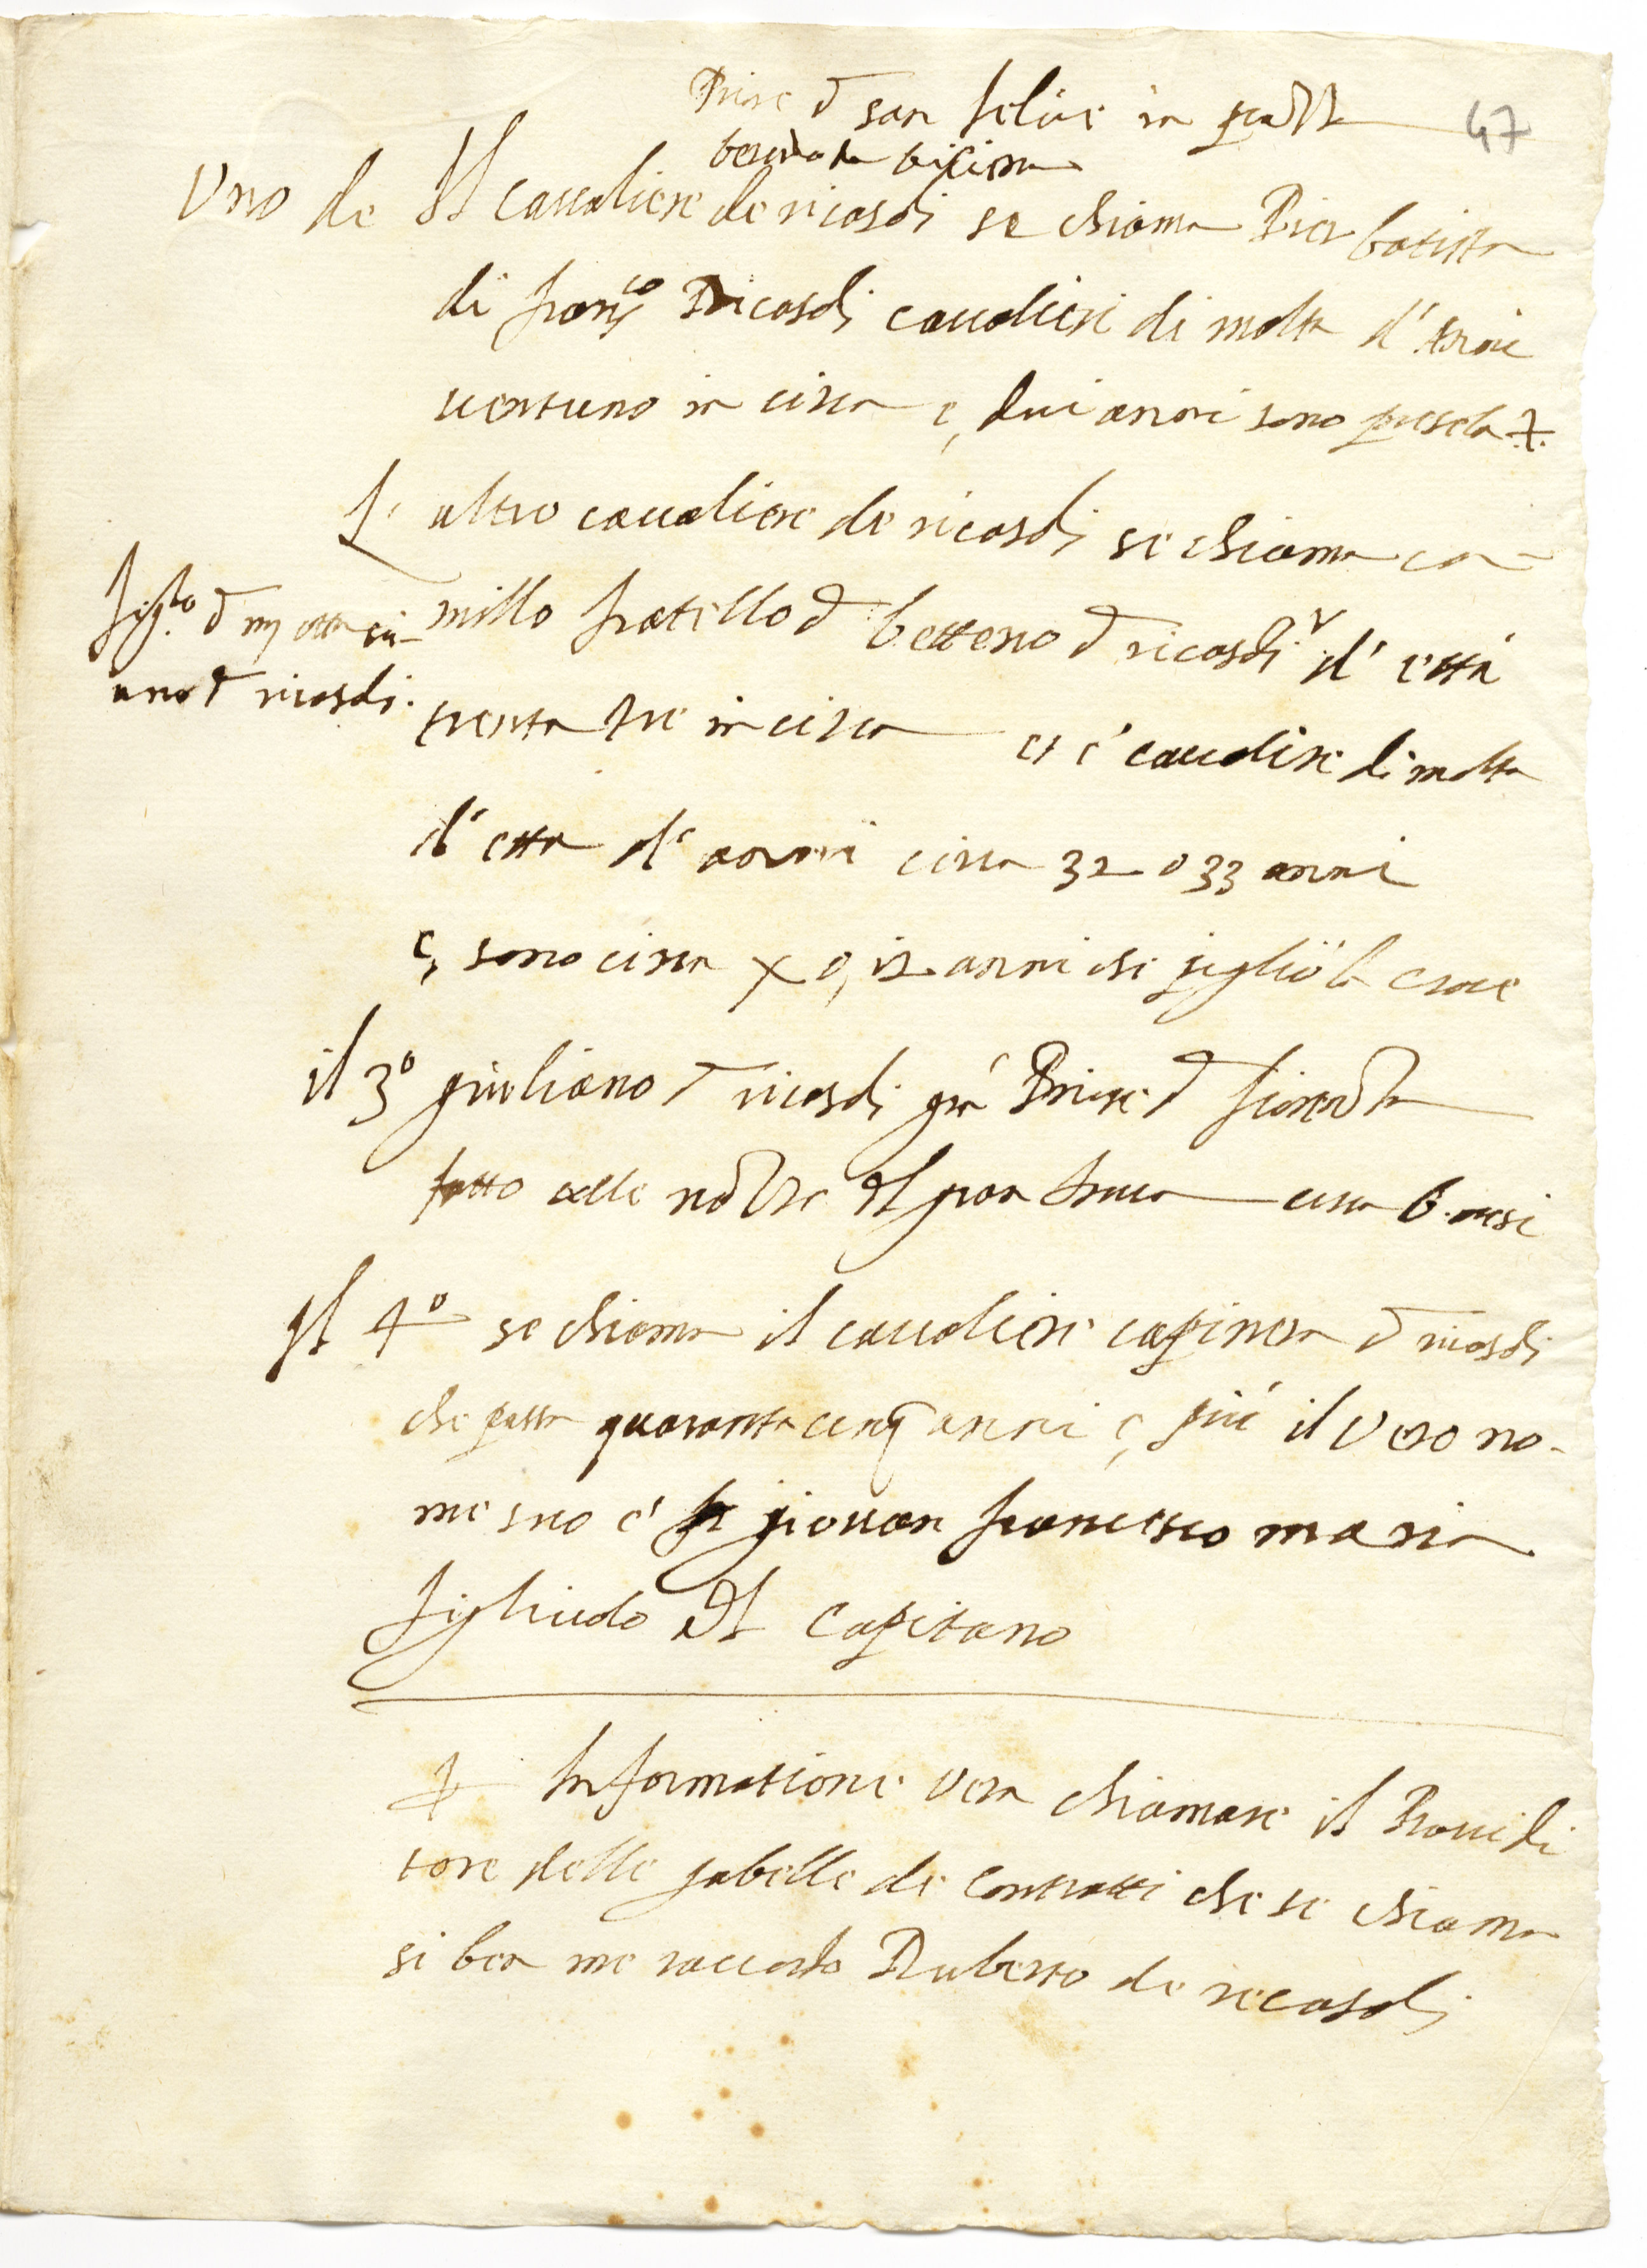 Priore d san felice in
47
Uno de Il Cavaliere de ricasoli se chiama Pier batista
di franco Ricasoli cavaliere di malta d'anni
ventuno in circa e, dui anni sono prese la ✝.
L' altro cavaliere de ricasoli se chiama ca-
millo fratello d bettino d ricasoli d'ettà
figlo d m otta vi-
ano d ricasoli.
trenta tre in circa et e' cavaliere di malta
d' etta d' anni circa 32 o 33 anni
e, sono circa X o, 12 anni che pigliò la croce
il 3º giuliano d ricasoli già Priore d fiorenza
fatto alle nozze del gran Duca circa 6 mesi
Il 4º se chiama il cavaliere capinera d ricasoli
che passa quaranta cinq anni e, più il vero no-
me suo e' giovan francesco maria
figliuolo del Capitano
Informatione vera chiamare il Provedi
tore delle gabelle de Contratti che se chiama
si ben me raccordo Ruberto de recasoli